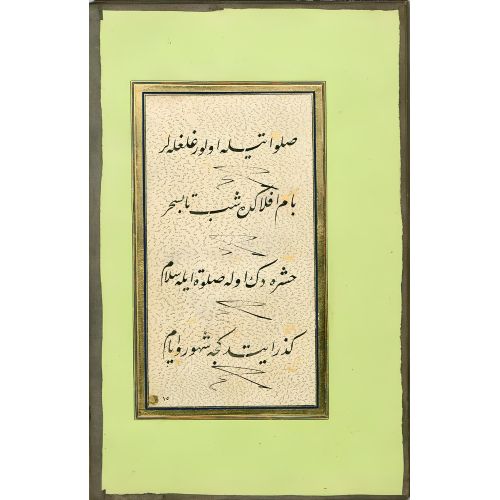 صلواتیله اولور غلغله لر
بام افلاکده شب تا بسحر
حشره دک اوله صلوة ایله سلام
کذر ایتدکجه شهور و ایام
١٥